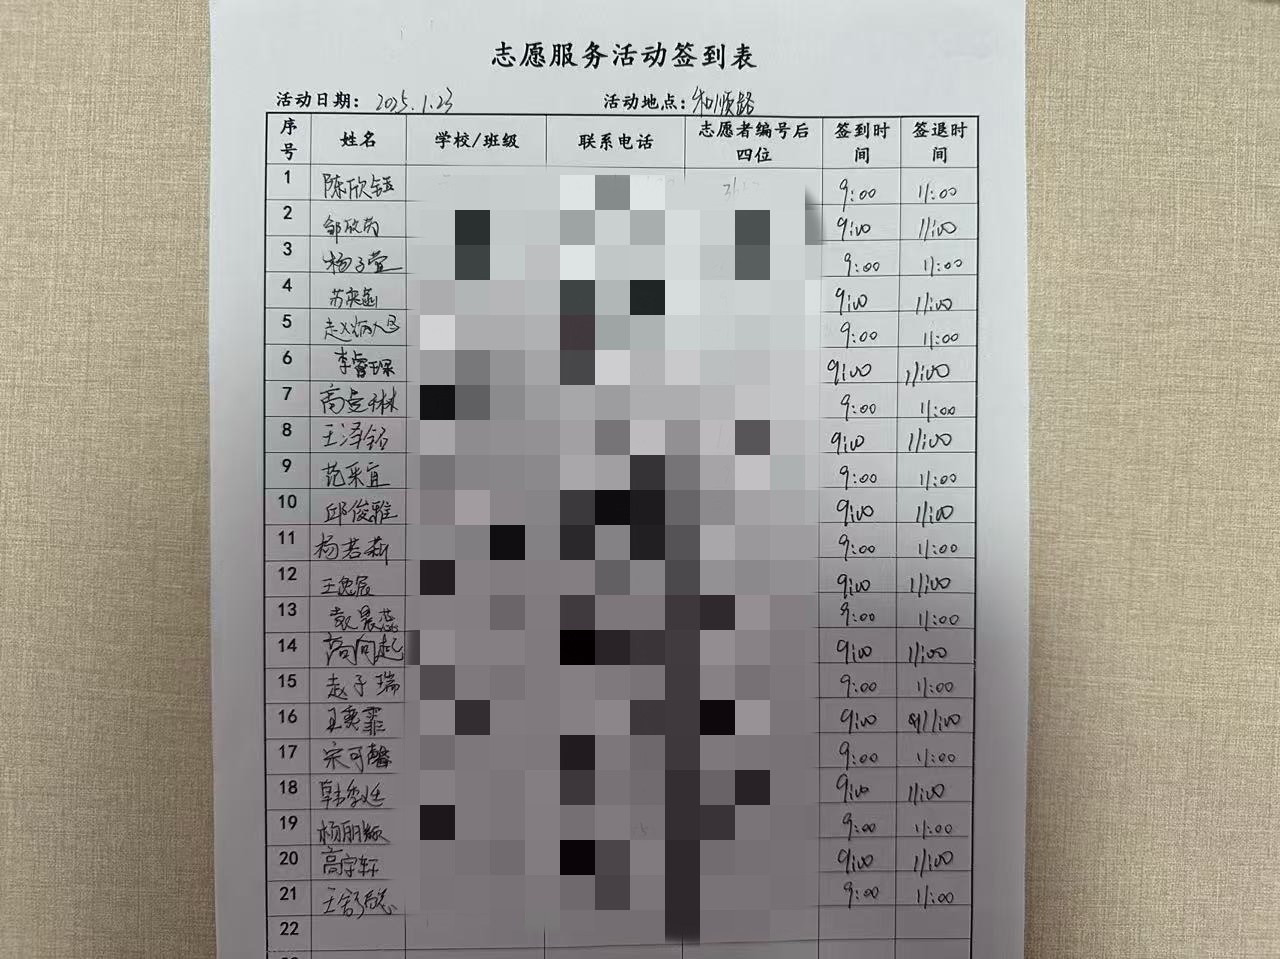 志愿服务活动签到表
活动日期: 2025.1.23 活动地点: 和顺路
序号 姓名 学校/班级 联系电话 志愿者编号后四位 签到时间 签退时间
1 陈欣钰 9:00 11:00
2 邹欣芮 9:00 11:00
3 杨子萱 9:00 11:00
4 苏奕菡 9:00 11:00
5 9:00 11:00
6 李睿琛 9:00 11:00
7 高萱琳 9:00 11:00
8 王泽铭 9:00 11:00
9 范采宜 9:00 11:00
10 邱俊雅 9:00 11:00
11 杨若莉 9:00 11:00
12 王逸宸 9:00 11:00
13 袁晨蕊 9:00 11:00
14 高向起 9:00 11:00
15 赵子瑞 9:00 11:00
16 王奕霏 9:00 11:00
17 宋可馨 9:00 11:00
18 韩季廷 9:00 11:00
19 杨丽颖 9:00 11:00
20 高宇轩 9:00 11:00
21 9:00 11:00
22